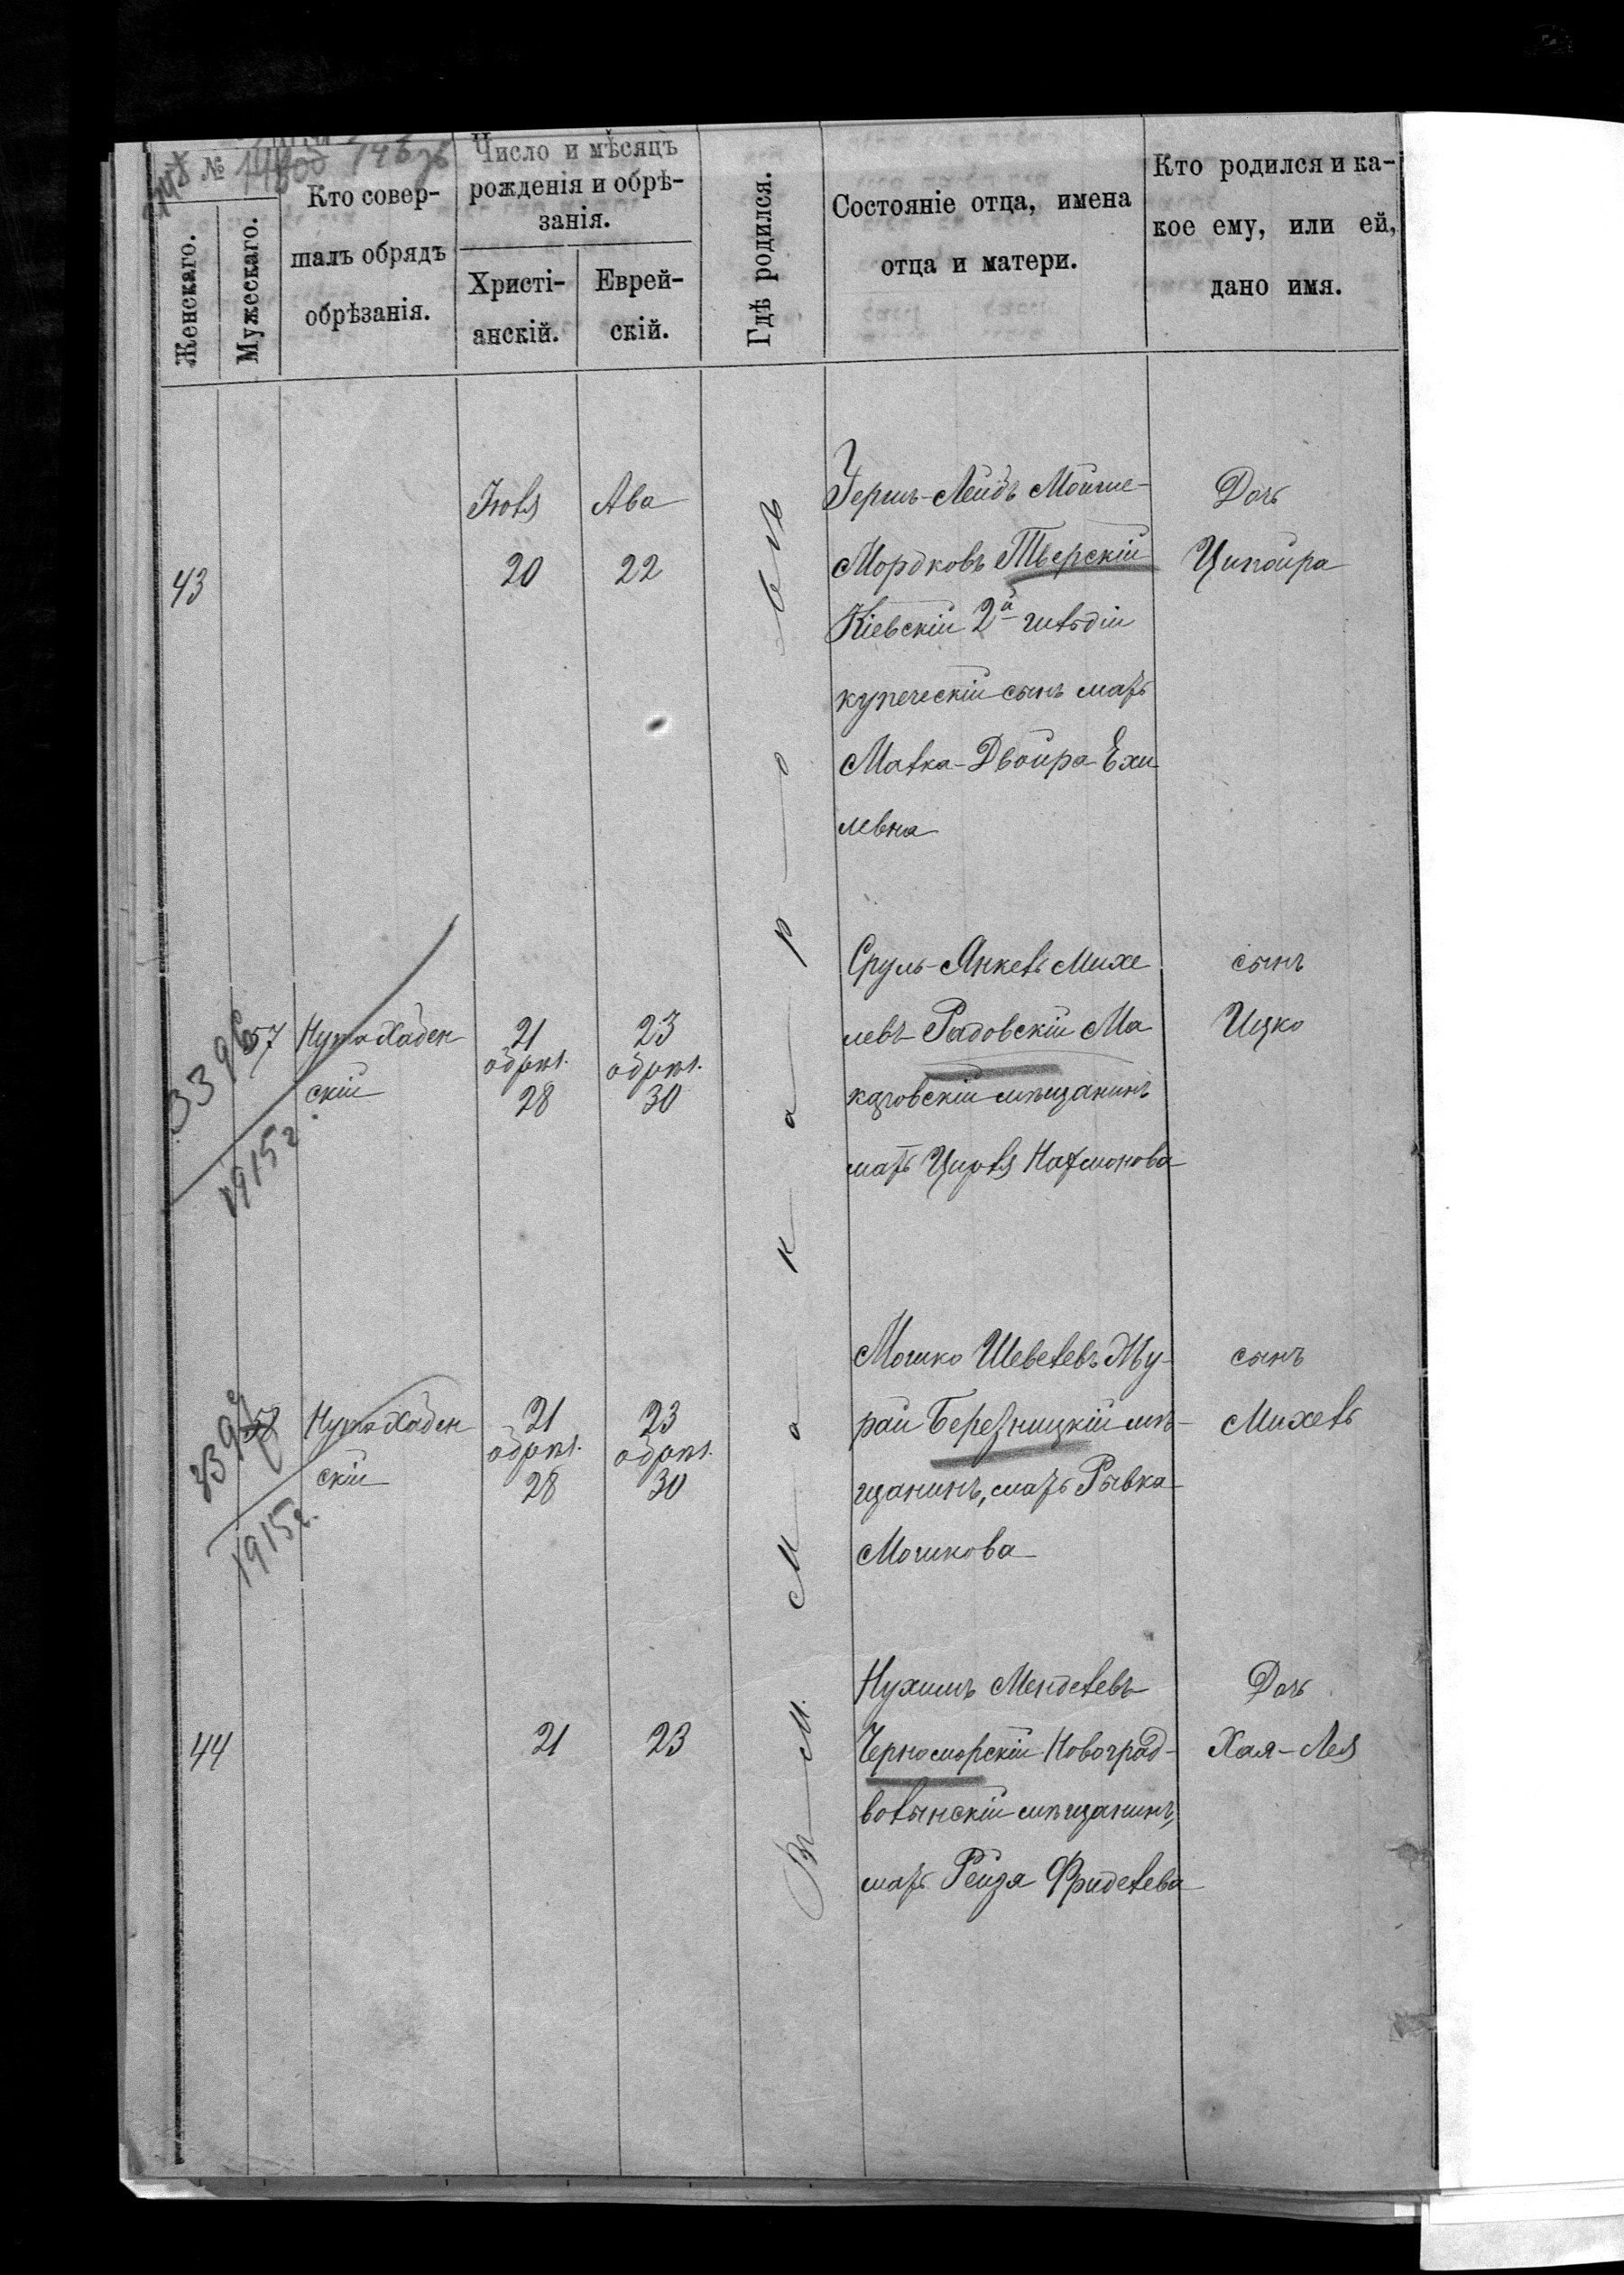 №
Женскаго.
Мужескаго.
Кто совер-
шалъ обрядъ
обрѣзанія.
Число и мѣсяцъ
рожденія и обрѣ-
занія.
Христі-
анскій.
Еврей-
скій.
Гдѣ родился.
Состояніе отца, имена
отца и матери.
Кто родился и ка-
кое ему, или ей,
дано имя.
Въ м. Макаровѣ
43
Іюля
20
Ава
22
Гершъ-Лейбъ Мойше-
Мордковъ Тверскій
Кіевскій 2й гильдіи
купеческій сынъ мать
Малка-Двойра Ехи
левна
Дочь
Ципойра
3396
1915 г.
57
Нута Хаден
скій
21
обрѣз.
28
23
обрѣз.
30
Сруль-Янкель Михе
левъ Радовскій Ма
каровскій мѣщанинъ
мать Цирля Нахманова
сынъ
Ицко
3397
1915 г.
58
Нута Хаден
скій
21
обрѣз.
28
23
обрѣз.
30
Мошко Шевелевъ
Березницкій мѣ-
щанинъ, мать Рывка
Мошкова
сынъ
Михель
44
21
23
Нухимъ Менделевъ
Черноморскій Новоград-
волынскій мѣщанинъ,
мать Рейзя Фриделева
Дочь
Хая-Лея